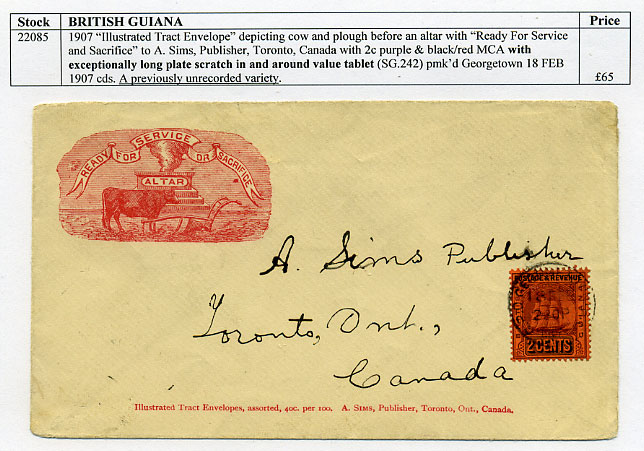 Stock BRITISH GUIANA Price
22085 1907 “Illustrated Tract Envelope” depicting cow and plough before an altar with “Ready For Service
and Sacrifice” to A. Sims, Publisher, Toronto, Canada with 2c purple & black/red MCA with
exceptionally long plate scratch in and around value tablet (SG.242) pmk’d Georgetown 18 FEB
1907 cds. A previously unrecorded variety. £65
READY FOR SERVICE OR SACRIFICE
ALTAR
A. Sims Publisher
Toronto, Ont.,
Canada
POSTAGE & REVENUE
GUIANA
2 CENTS
Illustrated Tract Envelopes, assorted, 40c. per 100. A. SIMS, Publisher, Toronto, Ont., Canada.